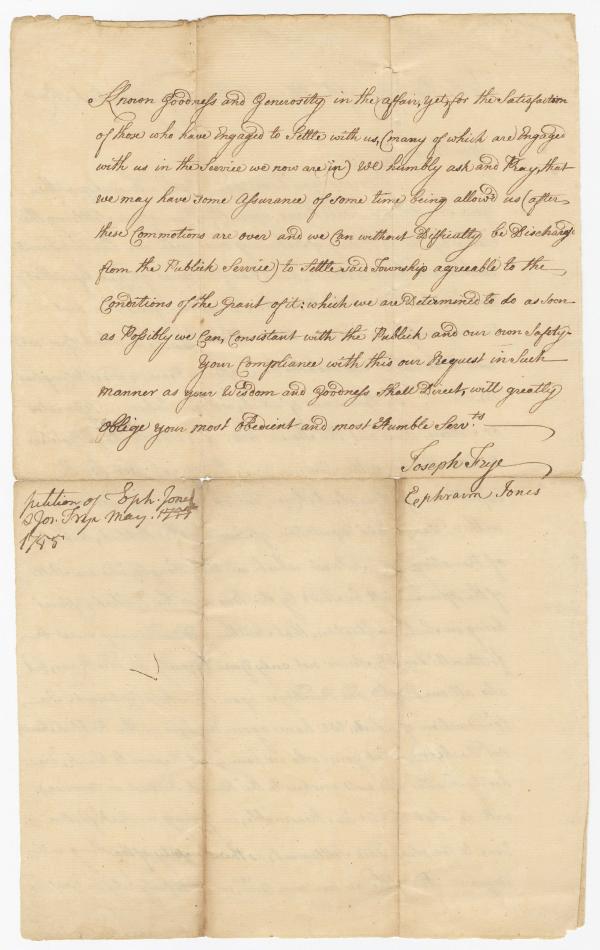 Known Goodness and Generosity in the affair, yet, for the Satisfaction
of those who have Engaged to Settle with us, (many of which are Engaged
with us in the Service we now are in) We humbly ask and Pray, that
we may have some Assurance of some time being allow'd us (after
these Commotions are over and we Can without Difficulty be Discharg'd
from the Publick Service) to Settle said Township agreeable to the
Conditions of the Grant of it: which we are Determined to do as soon
as Possibly we Can, Consistant with the Publick and our own Safety.
Your Compliance with this our Request in Such
manner as your Wisdom and Goodness Shall Direct, will greatly
Oblige your most Obedient and most Humble Serv.ts
Joseph Frye
Ephraim Jones
petition of Eph. Jones
& Jos. Frye May.
1755